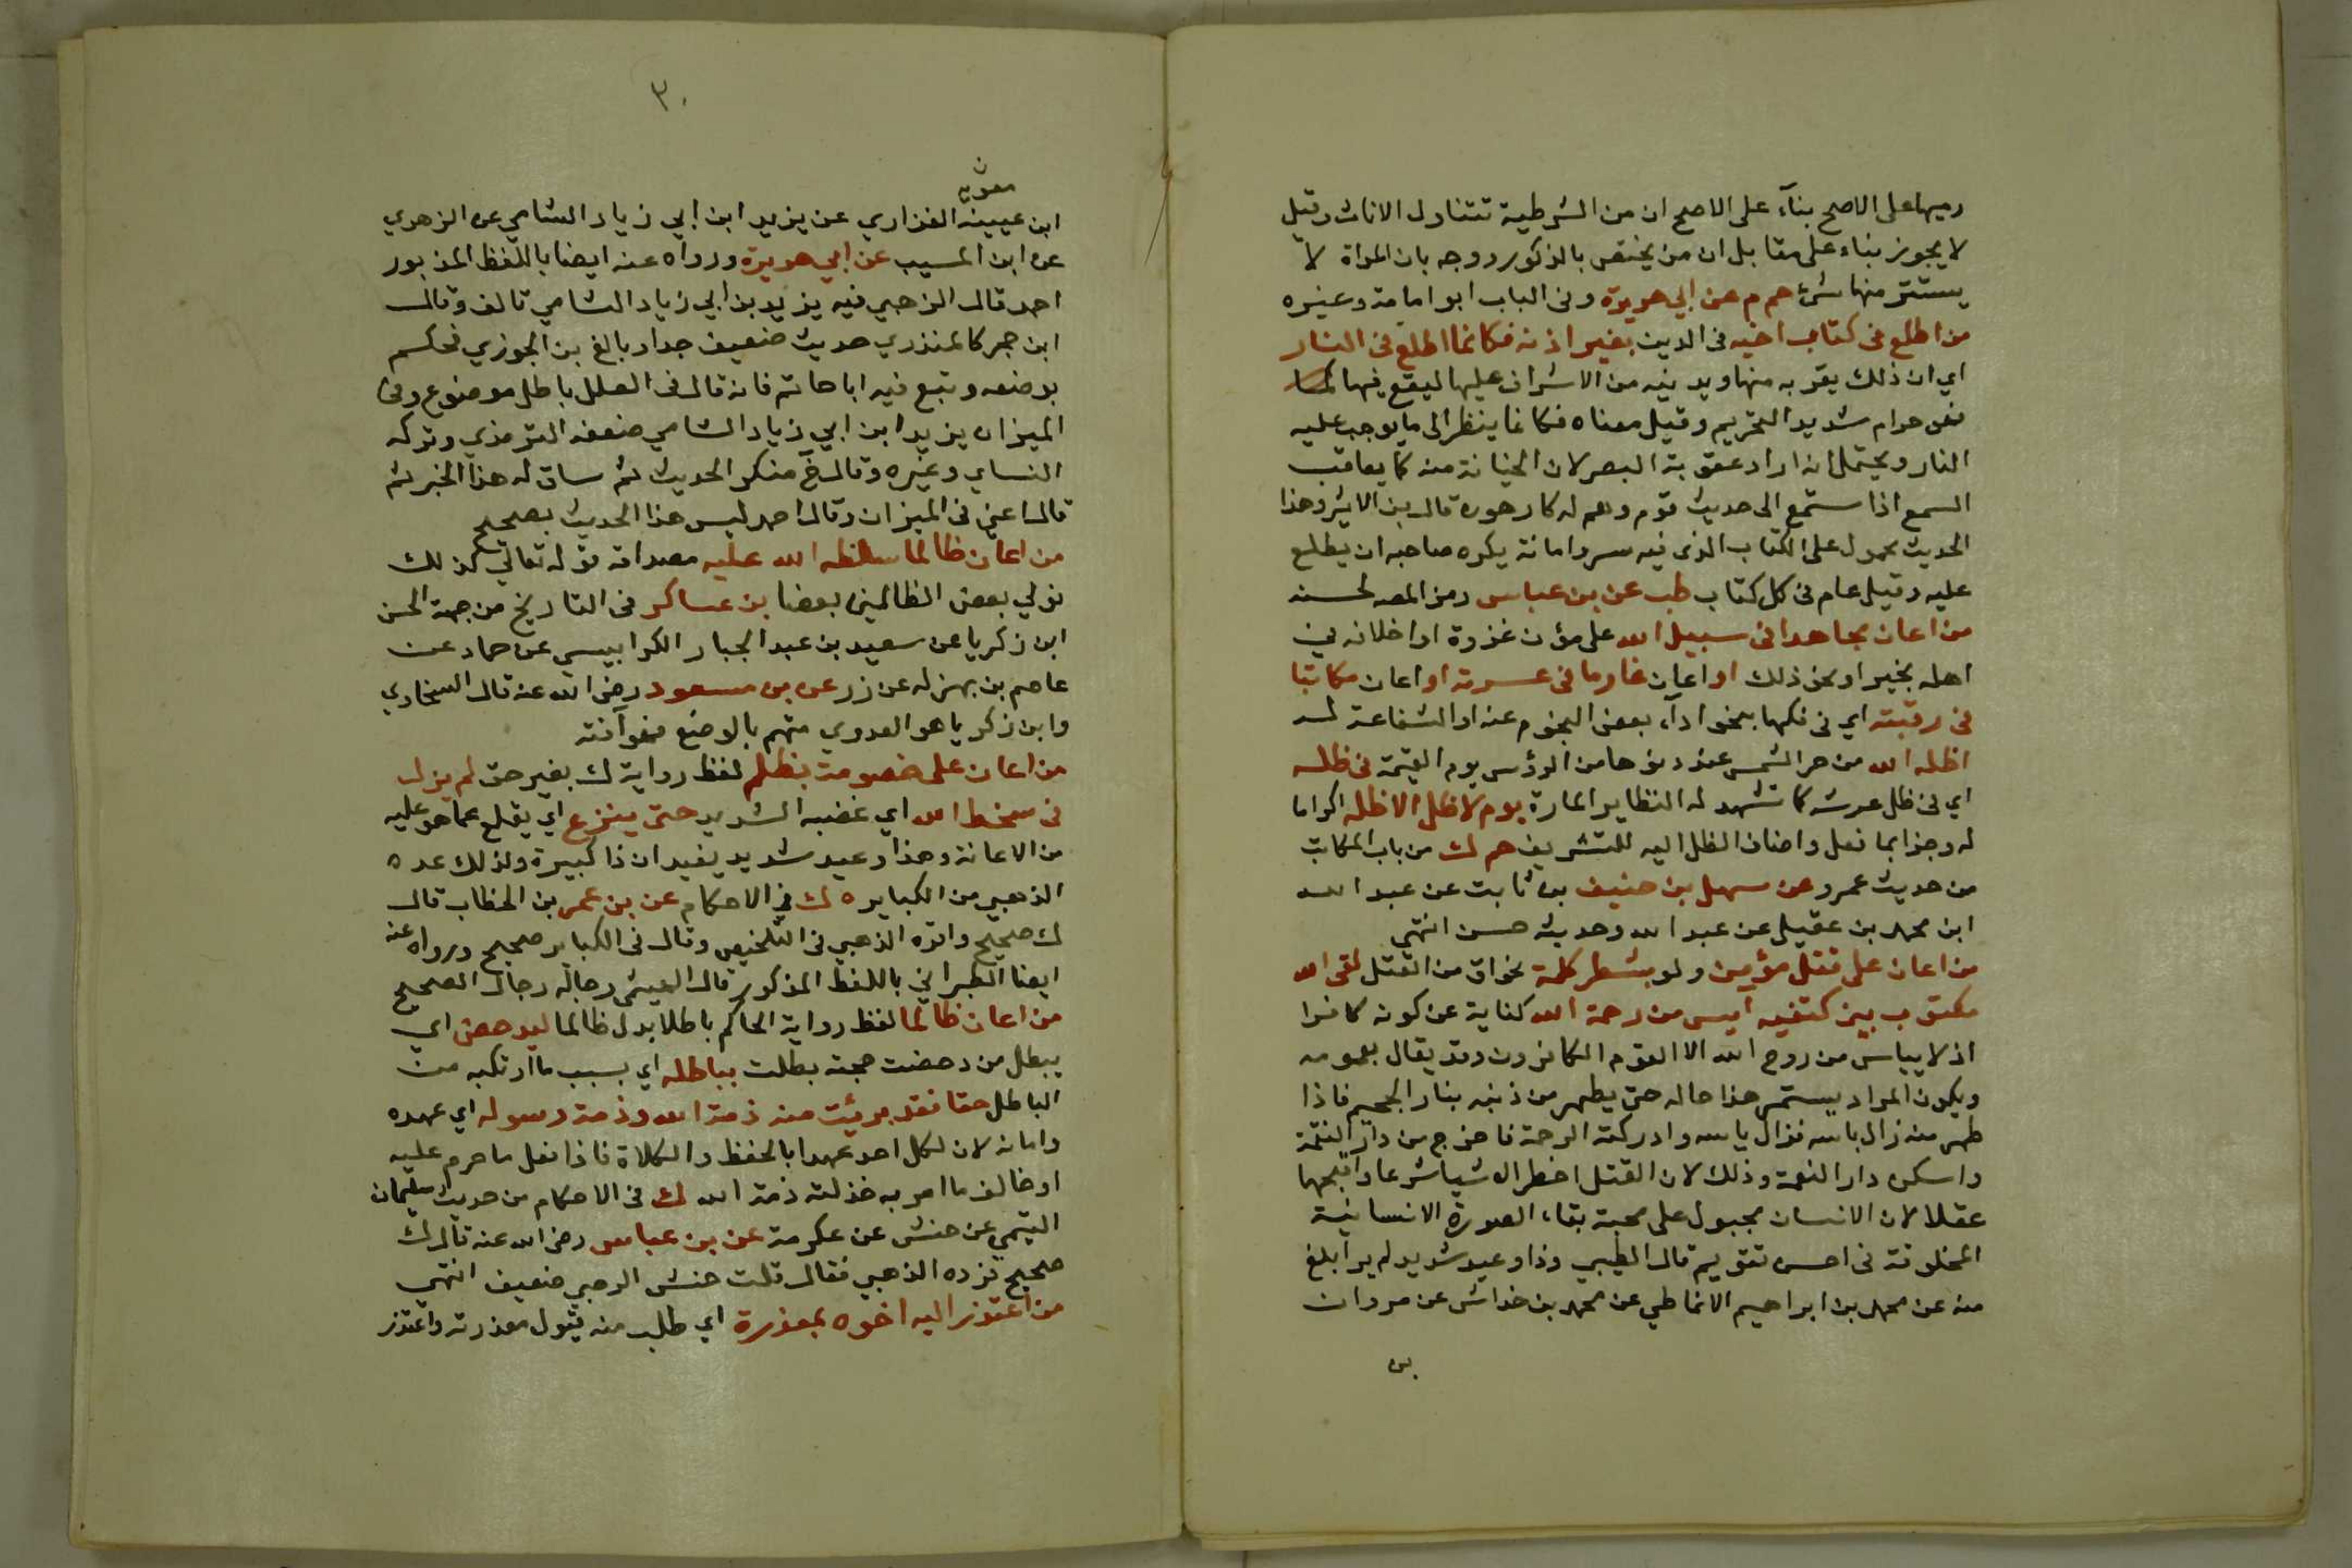 رميها على الاصح بنآء على الاصح ان من الشرطية تتناول الاناث وقيل
لا يجوز بناء على مقابل ان من يختص بالذكور ووجه بان المراة لا
يستتر منها شئ حم م عن ابي هريرة وفي الباب ابو امامة وغيره
من اطلع في كتاب اخيه في الدين بغير اذنه فكانما اطلع في النار
اي ان ذلك يقربه منها ويدنيه من الاشراف عليها ليقع فيها
فهو حرام شديد التحريم وقيل معناه فكانما ينظر الى ما يوجب عليه
النار ويحتمل انه اراد عقوبة البصر لان الخيانة منه كما يعاقب
السمع اذا استمع الى حديث قوم وهم له كارهون قال بن الاثير وهذا
الحديث محمول على الكتاب الذي فيه سر وامانة يكره صاحبه ان يطلع
عليه وقيل عام في كل كتاب طب عن بن عباس رمز المصه لحسنه
من اعان مجاهدا في سبيل الله على مؤن غزوة او اخلافه في
اهله بخير او نحو ذلك او اعان غارما في عسرته او اعان مكاتبا
في رقبته اي في فكها بنحو ادآء بعض النجوم عنه او الشفاعة له
اظله الله من حر الشمس عند دنوها من الرؤس يوم القيمة في ظله
اي في ظل عرشه كما تشهد له النظاير المارة يوم لا ظل الا ظله اكراما
له وجزا بما فعل واضاف الظل اليه للتشريف حم ك من باب المكاتب
من حديث عمرو عن سهل بن حنيف بن ثابت عن عبد الله
ابن محمد بن عقيل عن عبد الله وحديثه حسن انتهى
من اعان على قتل مؤمن ولو بشطر كلمة نحو اق من القتل لقى الله
مكتوب بين كتفيه ايس من رحمة الله كناية عن كونه كافرا
اذ لا يياس من روح الله الا القوم الكافرون وقد يقال بعمومه
ويكون المراد يستمر هذا حاله حتى يطهر من ذنبه بنار الجحيم فاذا
طهر منه زال باسه فزال ياسه وادركته الرحمة فاخرج من دار النقمة
واسكن دار النعمة وذلك لان القتل اخطر الاشيا شرعا واقبحها
عقلا لان الانسان مجبول على محبة بقاء الصورة الانسانية
المخلوقة في احسن تقويم قال الطيبي وذا وعيد شديد لم ير ابلغ
منه عن محمد بن ابراهيم الانماطي عن محمد بن خداش عن مروان
بن
٣٠
معوية
ابن عيينة الفزاري عن يزيد ابن ابي زياد الشامي عن الزهري
عن ابن المسيب عن ابي هريرة ورواه عنه ايضا باللفظ المذبور
احمد قال الزهبي فيه يزيد بن ابي زياد الشامي تالف وقال
ابن حجر كالمنذري حديث ضعيف جدا وبالغ بن الجوزي فحكم
بوضعه وتبع فيه ابا حاتم فانه قال في العلل باطل موضوع وفي
الميزان يزيد ابن ابي زياد الشامي ضعفه الترمذي وتركه
النساي وغيره وقال خ منكر الحديث ثم ساق له هذا الخبر ثم
قال اعني في الميزان وقال احمد ليس هذا الحديث بصحيح
من اعان ظالما سلطه الله عليه مصداقه قوله تعالى كذلك
نولي بعض الظالمين بعضا بن عساكر في التاريخ من جهة الحسن
ابن زكريا عن سعيد بن عبد الجبار الكرابيسي عن حماد عن
عاصم بن بهزله عن زر عن بن مسعود رضي الله عنه قال السخاوي
وابن زكريا هو العدوي متهم بالوضع فهو آفته
من اعان على خصومة بظلم لفظ رواية ك بغير حق لم يزل
في سخط الله اي غضبه الشديد حتى ينزع اي يقلع عما هو عليه
من الاعانة وهذا وعيد شديد يفيد ان ذا كبيرة ولذلك عده
الذهبي من الكباير ه ك في الاحكام عن بن عمر بن الخطاب قال
ك صحيح واقره الذهبي في التلخيص وقال في الكباير صحيح ورواه عنه
ايضا الطبراني باللفظ المذكور قال الهيثمي رجاله رجال الصحيح
من اعان ظالما لفظ رواية الحاكم باطلا بدل ظالما ليدحض اي
يبطل من دحضت حجته بطلت بباطله اي بسبب ما ارتكبه من
الباطل حقا فقد برئت منه ذمة الله وذمة رسوله اي عهده
وامانه لان لكل احد عهدا بالحفظ والكلاة فاذا فعل ما حرم عليه
او خالف ما امر به خذلته ذمة الله ك في الاحكام من حديث سليمان
التيمي عن حنش عن عكرمة عن بن عباس رضي الله عنه قال ك
صحيح فرده الذهبي فقال قلت حنش الرحبي ضعيف انتهى
من اعتذر اليه اخوه بمعذرة اي طلب منه قبول معذرته واعتذر